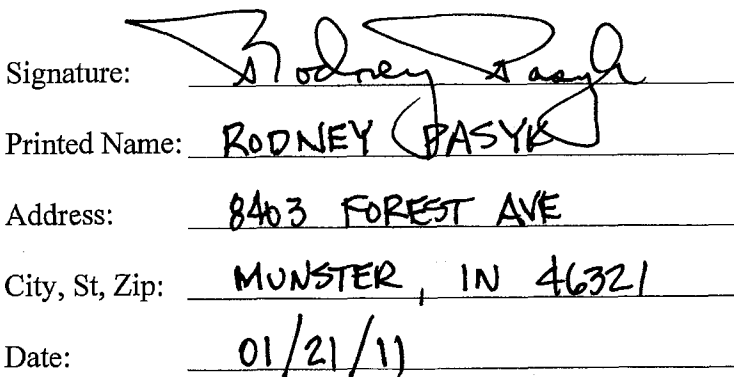 Signature: Rodney Pasyk
Printed Name: RODNEY PASYK
Address: 8403 FOREST AVE
City, St, Zip: MUNSTER, IN 46321
Date: 01/21/11